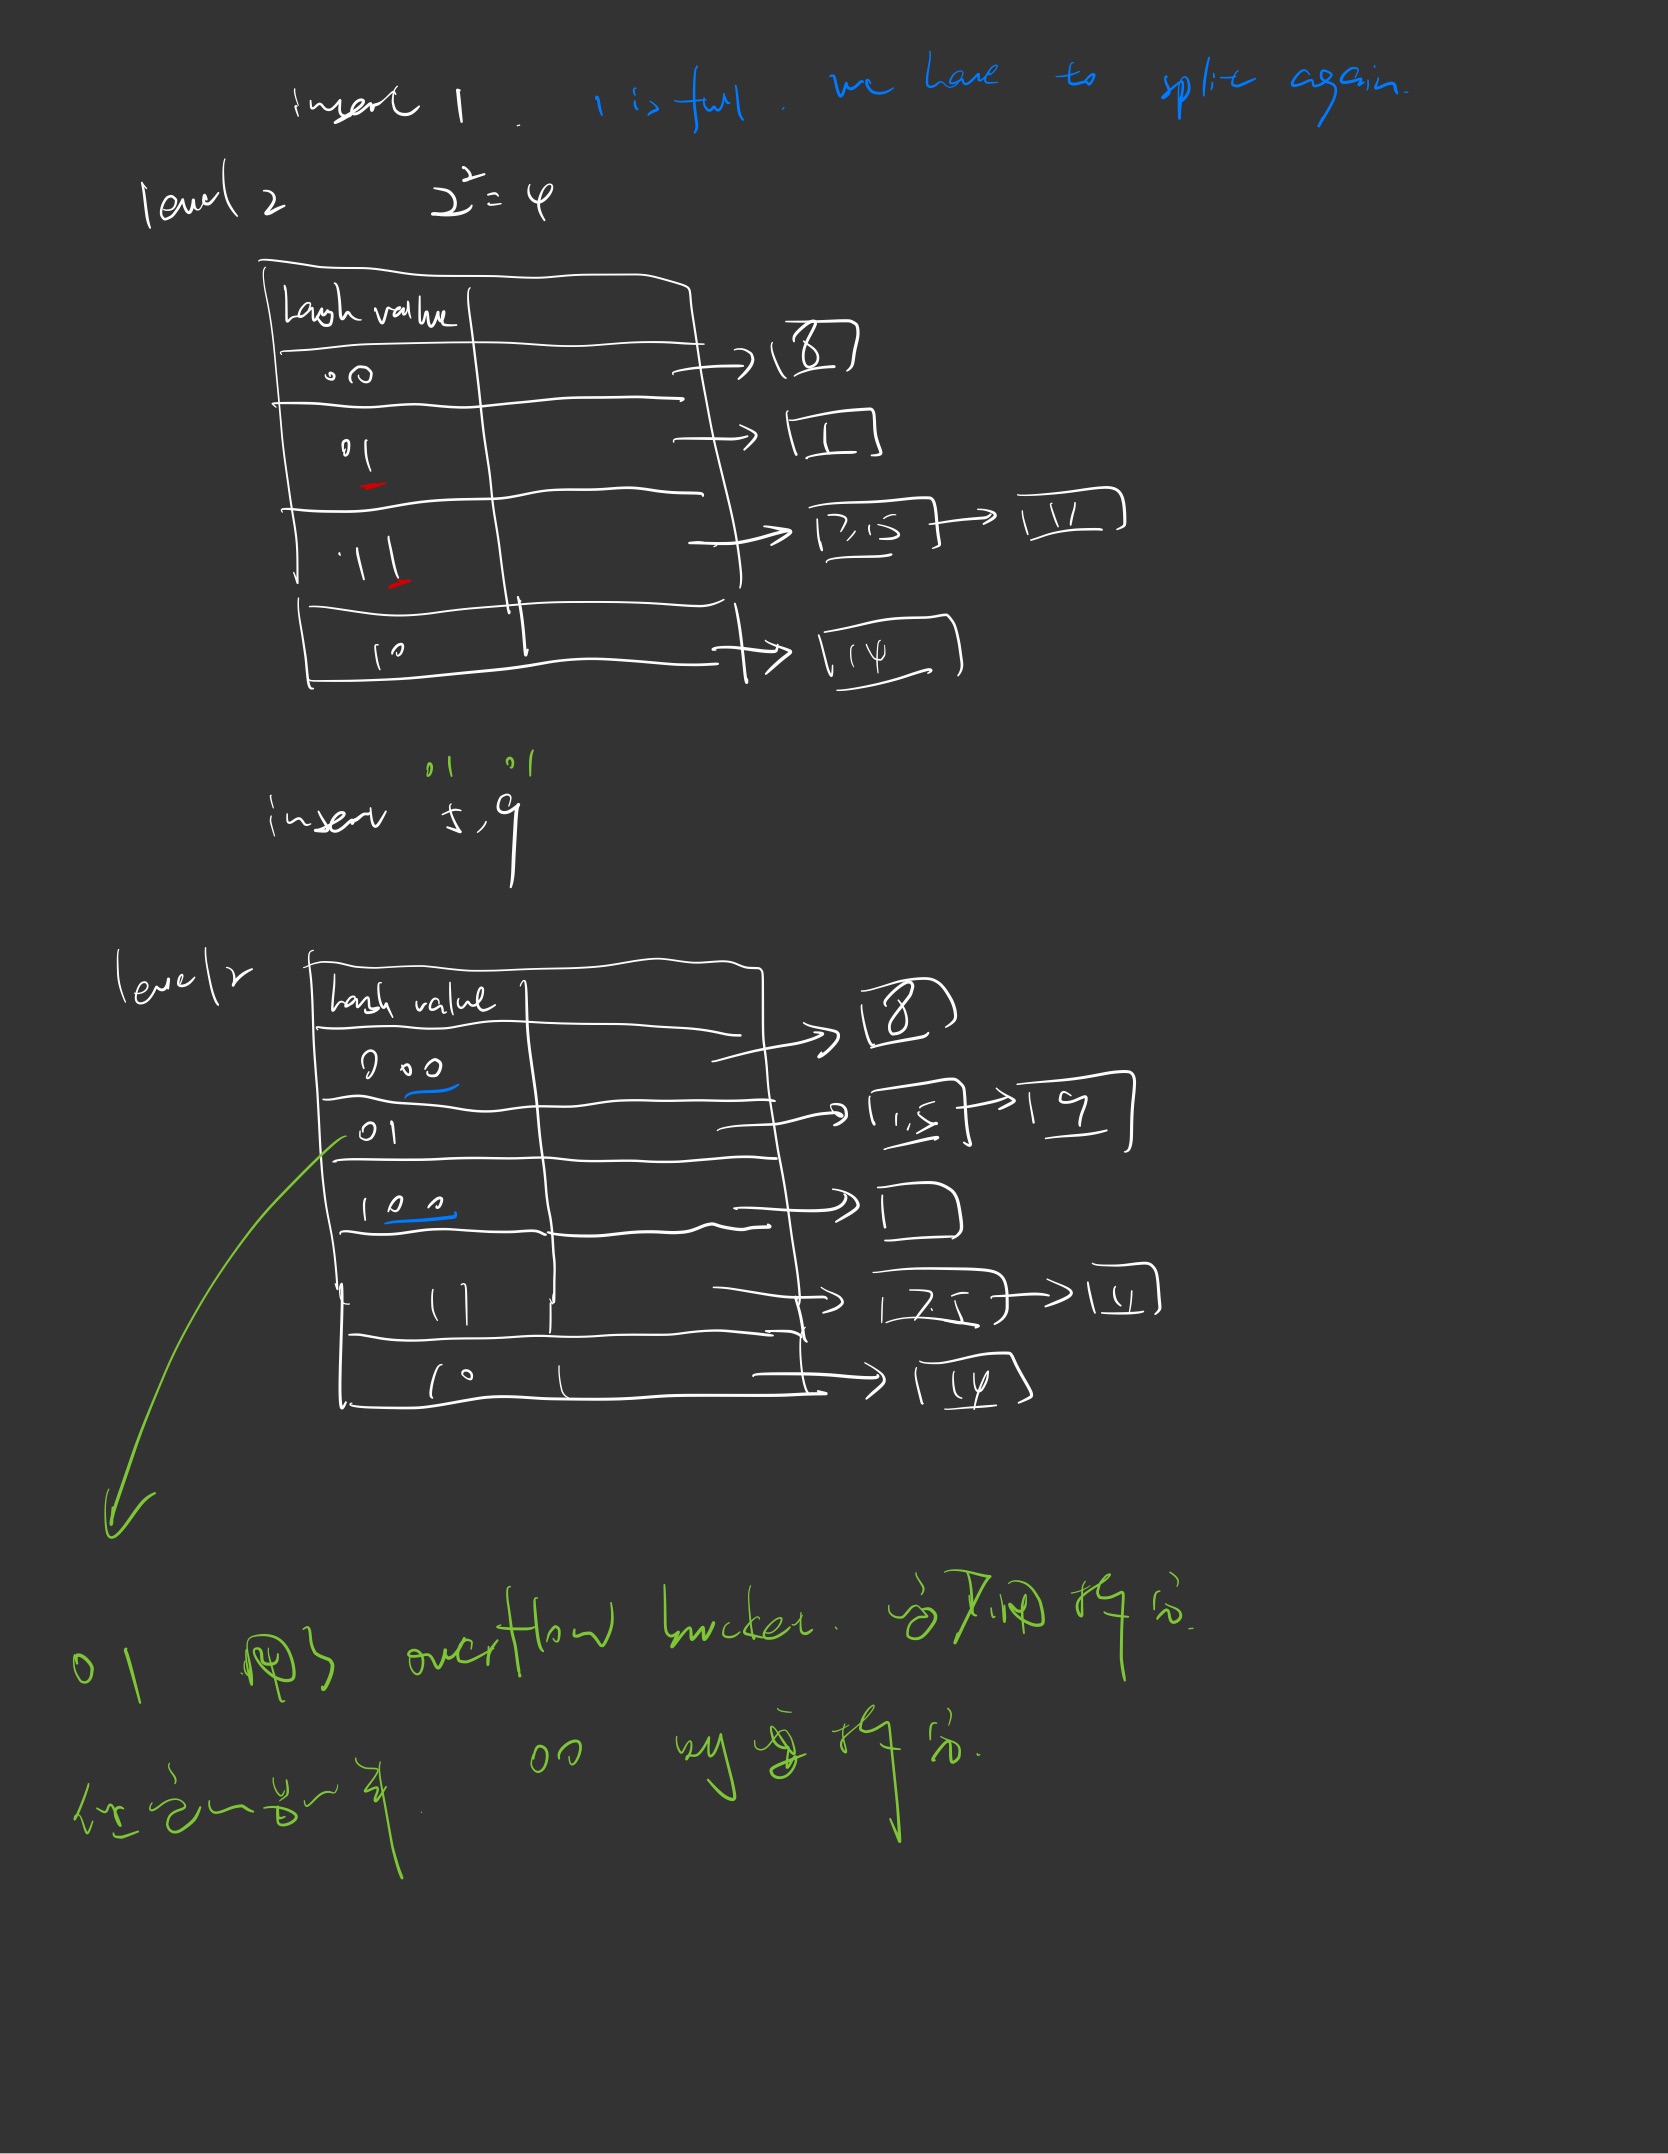 insert 1. 1 is full. we have to split again.
level 2 2²=4
hash value
00 8
01 1
11 7,15 11
10 14
01 01
insert 5,9
level 2
hash value
000 8
01 1,5 9
100
11 7,15 11
10 14
01 用了 overflow bucket. 它不用拆分.
00 拆分.